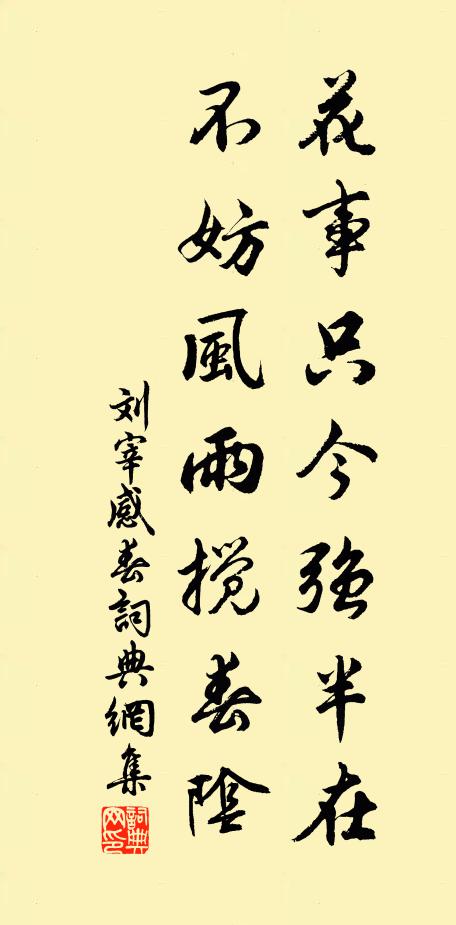 花事只今強半在
不妨風雨攪春陰
刘宰感春詞典網集
詞典網印